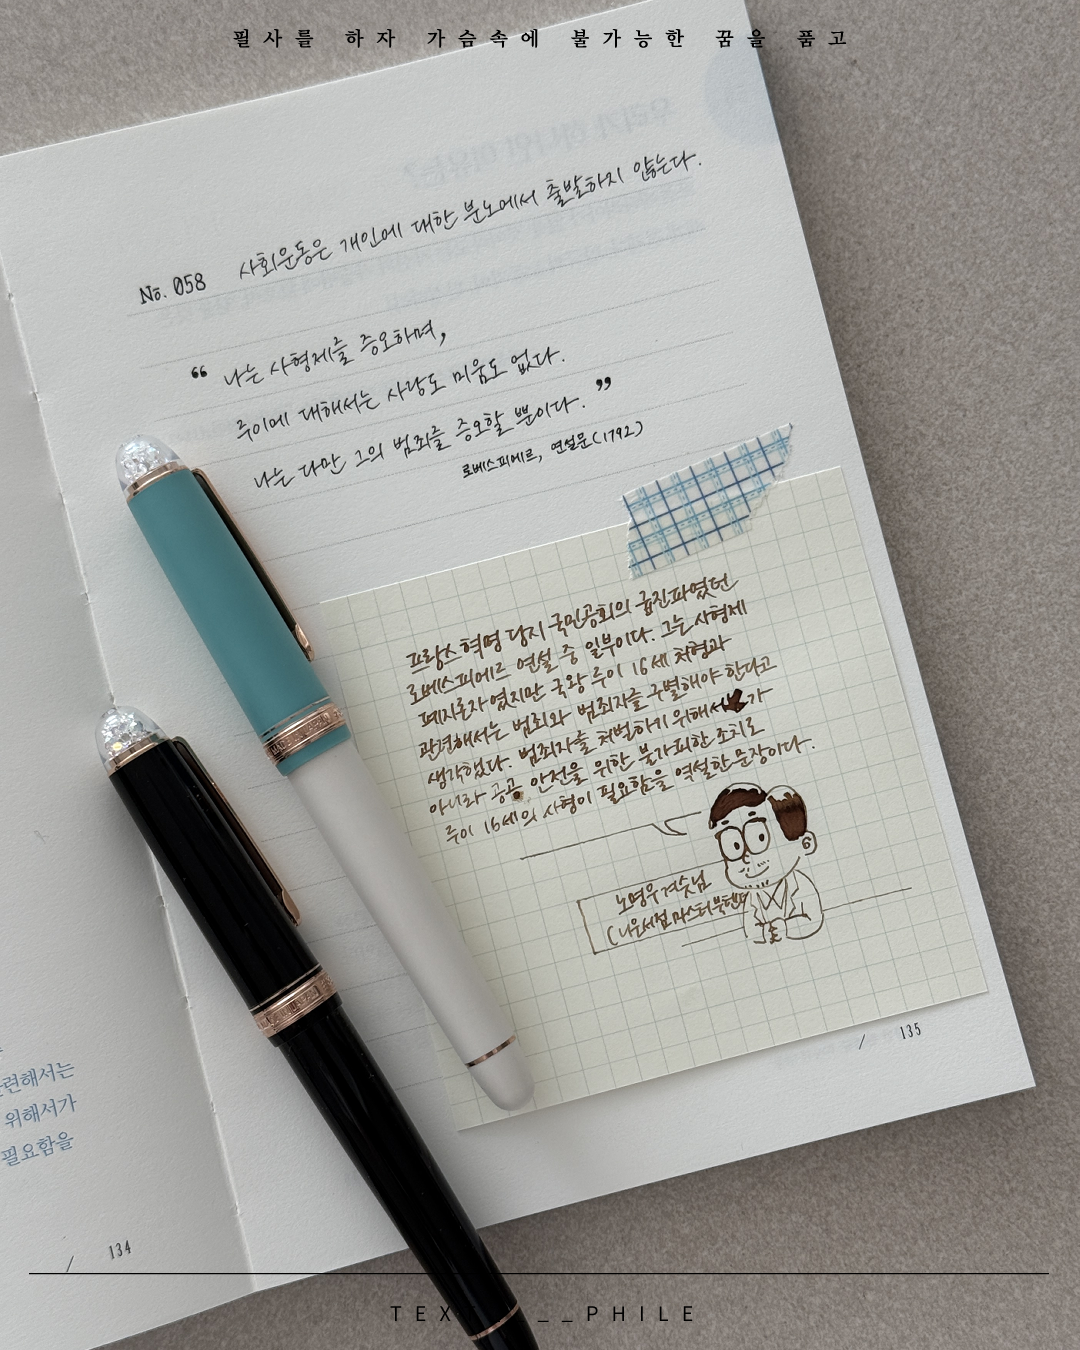 필사를 하자 가슴속에 불가능한 꿈을 품고
No. 058 사회운동은 개인에 대한 분노에서 출발하지 않는다.
“ 나는 사형제를 증오하며,
루이에 대해서는 사랑도 미움도 없다.
나는 다만 그의 범죄를 증오할 뿐이다. ”
로베스피에르, 연설문(1792)
프랑스 혁명 당시 국민공회의 급진파였던
로베스피에르 연설 중 일부이다. 그는 사형제
폐지론자였지만 국왕 루이 16세 처형과
관련해서는 범죄와 범죄자를 구별해야 한다고
생각했다. 범죄자를 처벌하기 위해서가
아니라 공공 안전을 위한 불가피한 조치로
루이 16세의 사형이 필요함을 역설한 문장이다.
노명우 교수님
(니은서점 마스터북텐더
135
련해서는
위해서가
필요함을
134
TEXT__PHILE